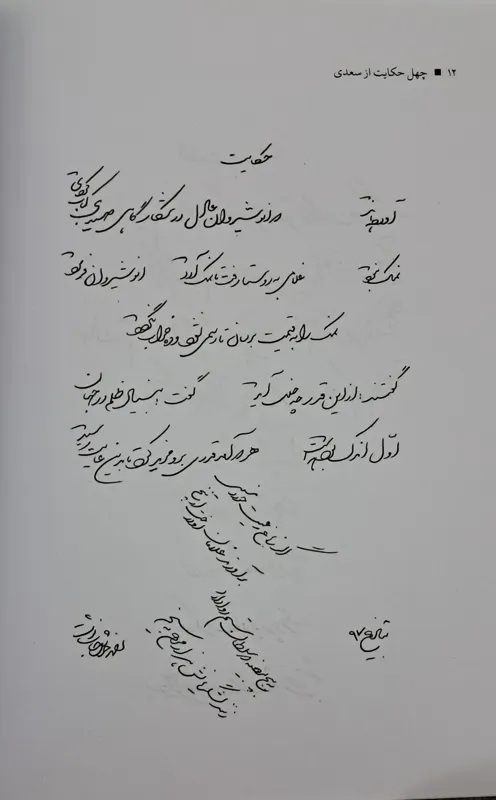 ۱۲ ■ چهل حکایت از سعدی
حکایت
آورده‌اند که انوشیروان عادل در شکارگاهی صیدی کباب کردند
نمک نبود غلامی به روستا رفت تا نمک آرد انوشیروان فرمود
نمک را به قیمت بستان تا رسمی نشود و ده خراب نگردد
گفتند: از این قدر چه خلل آید گفت بنیاد ظلم در جهان
اوّل اندک بوده است هر که آمد قدری برو مزید کرد تا بدین غایت رسید
اگر ز باغ رعیت ملک خورد سیبی
برآورند غلامان او درخت از بیخ
به پنج بیضه که سلطان ستم روا دارد
زنند لشکریانش هزار مرغ به سیخ
بتاریخ ۹۷